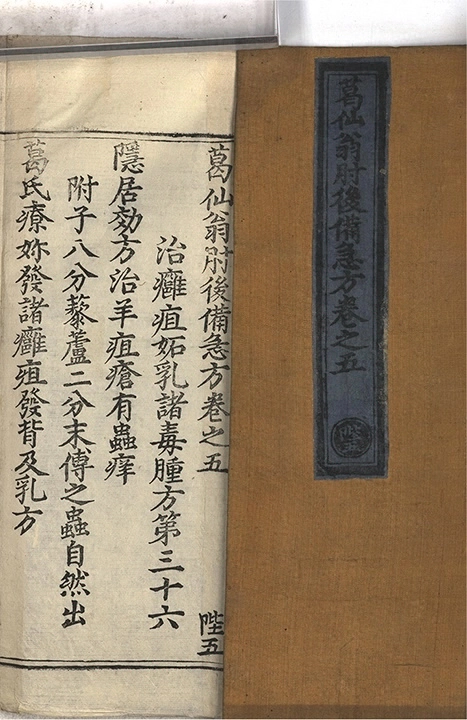 葛仙翁肘後備急方卷之五
陛五
葛仙翁肘後備急方卷之五
陛五
治癰疽妬乳諸毒腫方第三十六
隱居効方治羊疽瘡有蟲痒
附子八分藜蘆二分末傅之蟲自然出
葛氏療妳發諸癰疽發背及乳方